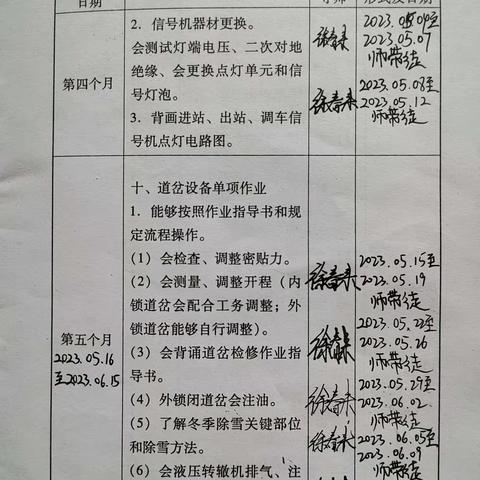 日期
导师
形式及日期
第四个月
2. 信号机器材更换。
会测试灯端电压、二次对地
绝缘、会更换点灯单元和信
号灯泡。
3. 背画进站、出站、调车信
号机点灯电路图。
徐春来
徐春来
2023.05.04至
2023.05.07
师带徒
2023.05.08至
2023.05.12
师带徒
第五个月
2023.05.16
至2023.06.15
十、道岔设备单项作业
1. 能够按照作业指导书和规
定流程操作。
(1) 会检查、调整密贴力。
(2) 会测量、调整开程（内
锁道岔会配合工务调整；外
锁道岔能够自行调整）。
(3) 会背诵道岔检修作业指
导书。
(4) 外锁闭道岔会注油。
(5) 了解冬季除雪关键部位
和除雪方法。
(6) 会液压转辙机排气、注
徐春来
徐春来
徐春来
徐春来
2023.05.15至
2023.05.19
师带徒
2023.05.22至
2023.05.26
师带徒
2023.05.29至
2023.06.02
师带徒
2023.06.05至
2023.06.09
师带徒